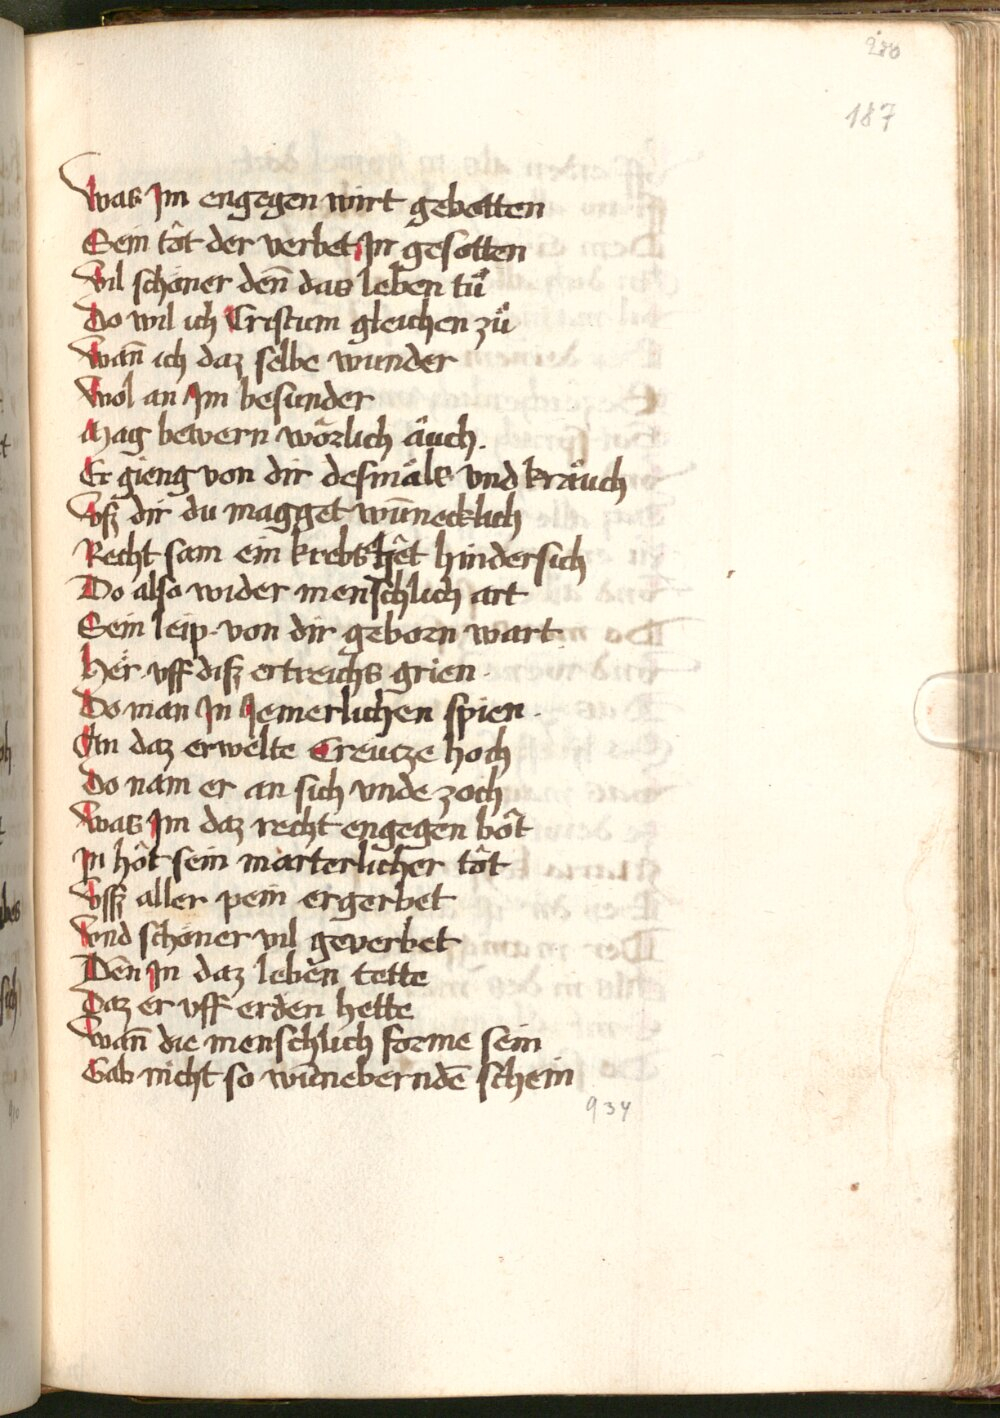 280
187
Was Jm engegen wirt gebotten
Sein tôt der verbet Jn gesotten
Vil schöner den̄ das leben tů
Do wil ich Cristum gleichen zů
Wan̄ ich daz selbe wunder
Wol an Jm besunder
Mag bewern wôrlich äuch.
Er gieng von dir desmâls vnd kräuch
Vſz dir du magget wūnecklich
Recht sam ein krebs hêt hindersich
Do also wider menschlich art
Sein leip von dir geborn wart.
Hër vff diſz ertreichs grien.
Do man Jn Jemerlichen spien.
An daz erwelte Creutze hoch
Do nam er an sich vnde zoch
Was Jm daz recht engegen bôt
Jn hôt sein marterlicher tôt
Vſſz aller pein ergerbet
Vnd schöner vil geverbet
Den̄ Jn daz leben tette
Daz er vff erden hette
Wan̄ die menschlich forme sein
Gab nicht so wūneberndē schein
934